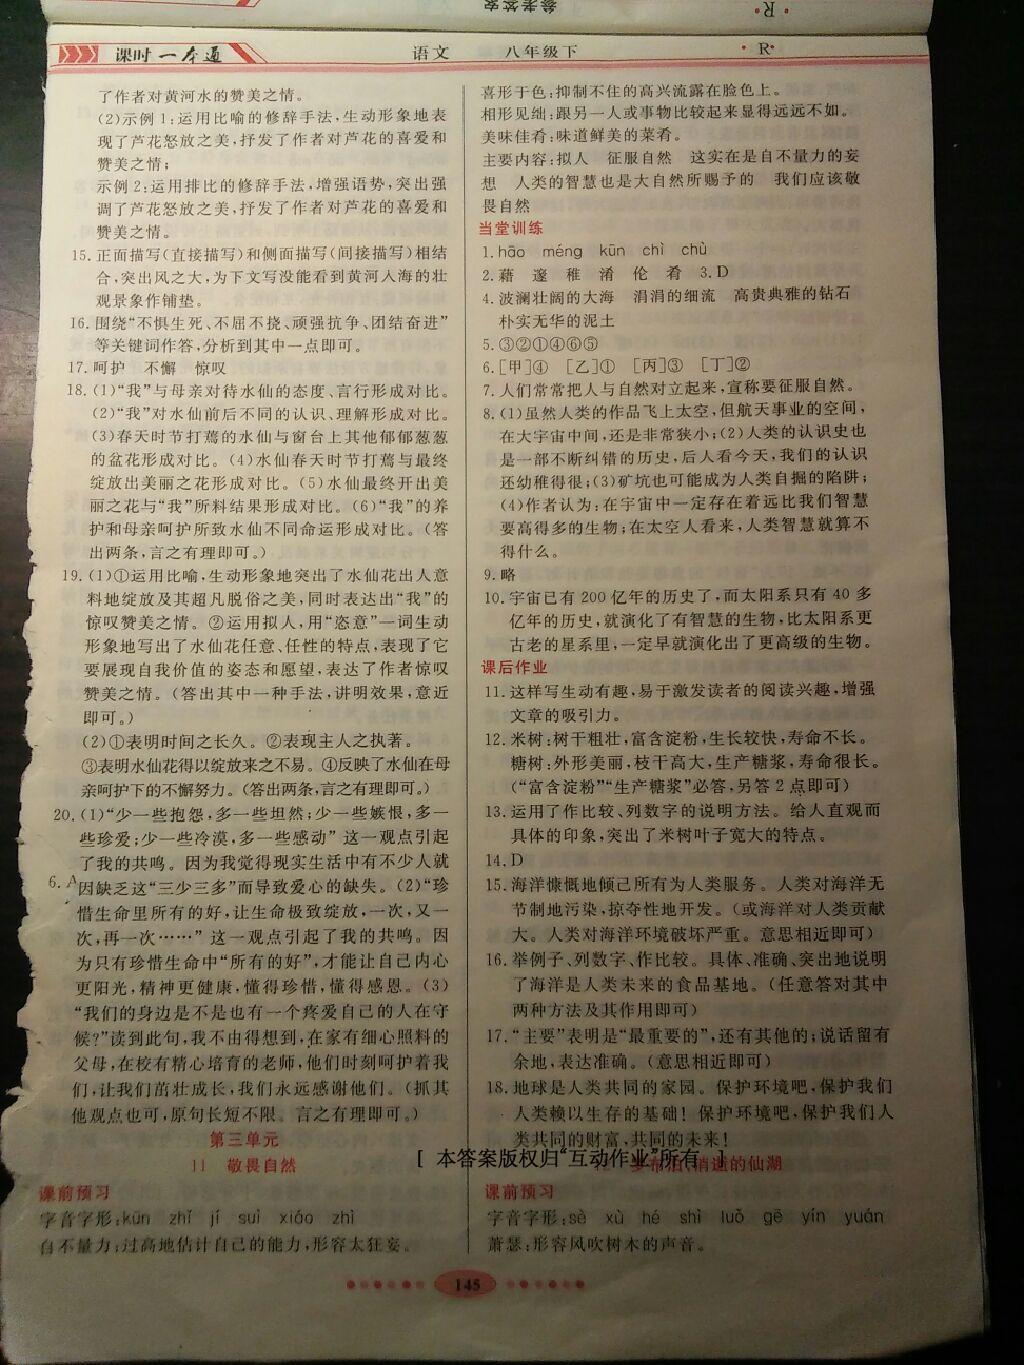 参考答案
R
课时一本通
语文 八年级下
R
了作者对黄河水的赞美之情。
(2)示例1:运用比喻的修辞手法,生动形象地表
现了芦花怒放之美,抒发了作者对芦花的喜爱和
赞美之情;
示例2:运用排比的修辞手法,增强语势,突出强
调了芦花怒放之美,抒发了作者对芦花的喜爱和
赞美之情。
15.正面描写(直接描写)和侧面描写(间接描写)相结
合,突出风之大,为下文写没能看到黄河入海的壮
观景象作铺垫。
16.围绕“不惧生死、不屈不挠、顽强抗争、团结奋进”
等关键词作答,分析到其中一点即可。
17.呵护 不懈 惊叹
18.(1)“我”与母亲对待水仙的态度、言行形成对比。
(2)“我”对水仙前后不同的认识、理解形成对比。
(3)春天时节打蔫的水仙与窗台上其他郁郁葱葱
的盆花形成对比。(4)水仙春天时节打蔫与最终
绽放出美丽之花形成对比。(5)水仙最终开出美
丽之花与“我”所料结果形成对比。(6)“我”的养
护和母亲呵护所致水仙不同命运形成对比。(答
出两条,言之有理即可。)
19.(1)①运用比喻,生动形象地突出了水仙花出人意
料地绽放及其超凡脱俗之美,同时表达出“我”的
惊叹赞美之情。②运用拟人,用“恣意”一词生动
形象地写出了水仙花任意、任性的特点,表现了它
要展现自我价值的姿态和愿望,表达了作者惊叹
赞美之情。(答出其中一种手法,讲明效果,意近
即可。)
(2)①表明时间之长久。②表现主人之执著。
③表明水仙花得以绽放来之不易。④反映了水仙在母
亲呵护下的不懈努力。(答出两条,言之有理即可。)
20.(1)“少一些抱怨,多一些坦然;少一些嫉恨,多一
些珍爱;少一些冷漠,多一些感动”这一观点引起
了我的共鸣。因为我觉得现实生活中有不少人就
6.A
因缺乏这“三少三多”而导致爱心的缺失。(2)“珍
惜生命里所有的好,让生命极致绽放,一次,又一
次,再一次……”这一观点引起了我的共鸣。因
为只有珍惜生命中“所有的好”,才能让自己内心
更阳光,精神更健康,懂得珍惜,懂得感恩。(3)
“我们的身边是不是也有一个疼爱自己的人在守
候?”读到此句,我不由得想到,在家有细心照料的
父母,在校有精心培育的老师,他们时刻呵护着我
们,让我们茁壮成长,我们永远感谢他们。(抓其
他观点也可,原句长短不限。言之有理即可。)
第三单元
11 敬畏自然
课前预习
字音字形:kūn zhǐ jí suì xiáo zhì
自不量力:过高地估计自己的能力,形容太狂妄。
喜形于色:抑制不住的高兴流露在脸色上。
相形见绌:跟另一人或事物比较起来显得远远不如。
美味佳肴:味道鲜美的菜肴。
主要内容:拟人 征服自然 这实在是自不量力的妄
想 人类的智慧也是大自然所赐予的 我们应该敬
畏自然
当堂训练
1.hāo méng kūn chì chù
2.藉 邃 稚 淆 伦 肴 3.D
4.波澜壮阔的大海 涓涓的细流 高贵典雅的钻石
朴实无华的泥土
5.③②①④⑥⑤
6.[甲]④ [乙]① [丙]③ [丁]②
7.人们常常把人与自然对立起来,宣称要征服自然。
8.(1)虽然人类的作品飞上太空,但航天事业的空间,
在大宇宙中间,还是非常狭小;(2)人类的认识史也
是一部不断纠错的历史,后人看今天,我们的认识
还幼稚得很;(3)矿坑也可能成为人类自掘的陷阱;
(4)作者认为:在宇宙中一定存在着远比我们智慧
要高得多的生物;在太空人看来,人类智慧就算不
得什么。
9.略
10.宇宙已有200亿年的历史了,而太阳系只有40多
亿年的历史,就演化了有智慧的生物,比太阳系更
古老的星系里,一定早就演化出了更高级的生物。
课后作业
11.这样写生动有趣,易于激发读者的阅读兴趣,增强
文章的吸引力。
12.米树:树干粗壮,富含淀粉,生长较快,寿命不长。
糖树:外形美丽,枝干高大,生产糖浆,寿命很长。
(“富含淀粉”“生产糖浆”必答,另答2点即可)
13.运用了作比较、列数字的说明方法。给人直观而
具体的印象,突出了米树叶子宽大的特点。
14.D
15.海洋慷慨地倾己所有为人类服务。人类对海洋无
节制地污染,掠夺性地开发。(或海洋对人类贡献
大。人类对海洋环境破坏严重。意思相近即可)
16.举例子、列数字、作比较。具体、准确、突出地说明
了海洋是人类未来的食品基地。(任意答对其中
两种方法及其作用即可)
17.“主要”表明是“最重要的”,还有其他的;说话留有
余地,表达准确。(意思相近即可)
18.地球是人类共同的家园。保护环境吧,保护我们
人类赖以生存的基础!保护环境吧,保护我们人
类共同的财富,共同的未来!
[ 本答案版权归“互动作业”所有 ]
消逝的仙湖
课前预习
字音字形:sè xù hé shì luǒ gē yín yuán
萧瑟:形容风吹树木的声音。
145